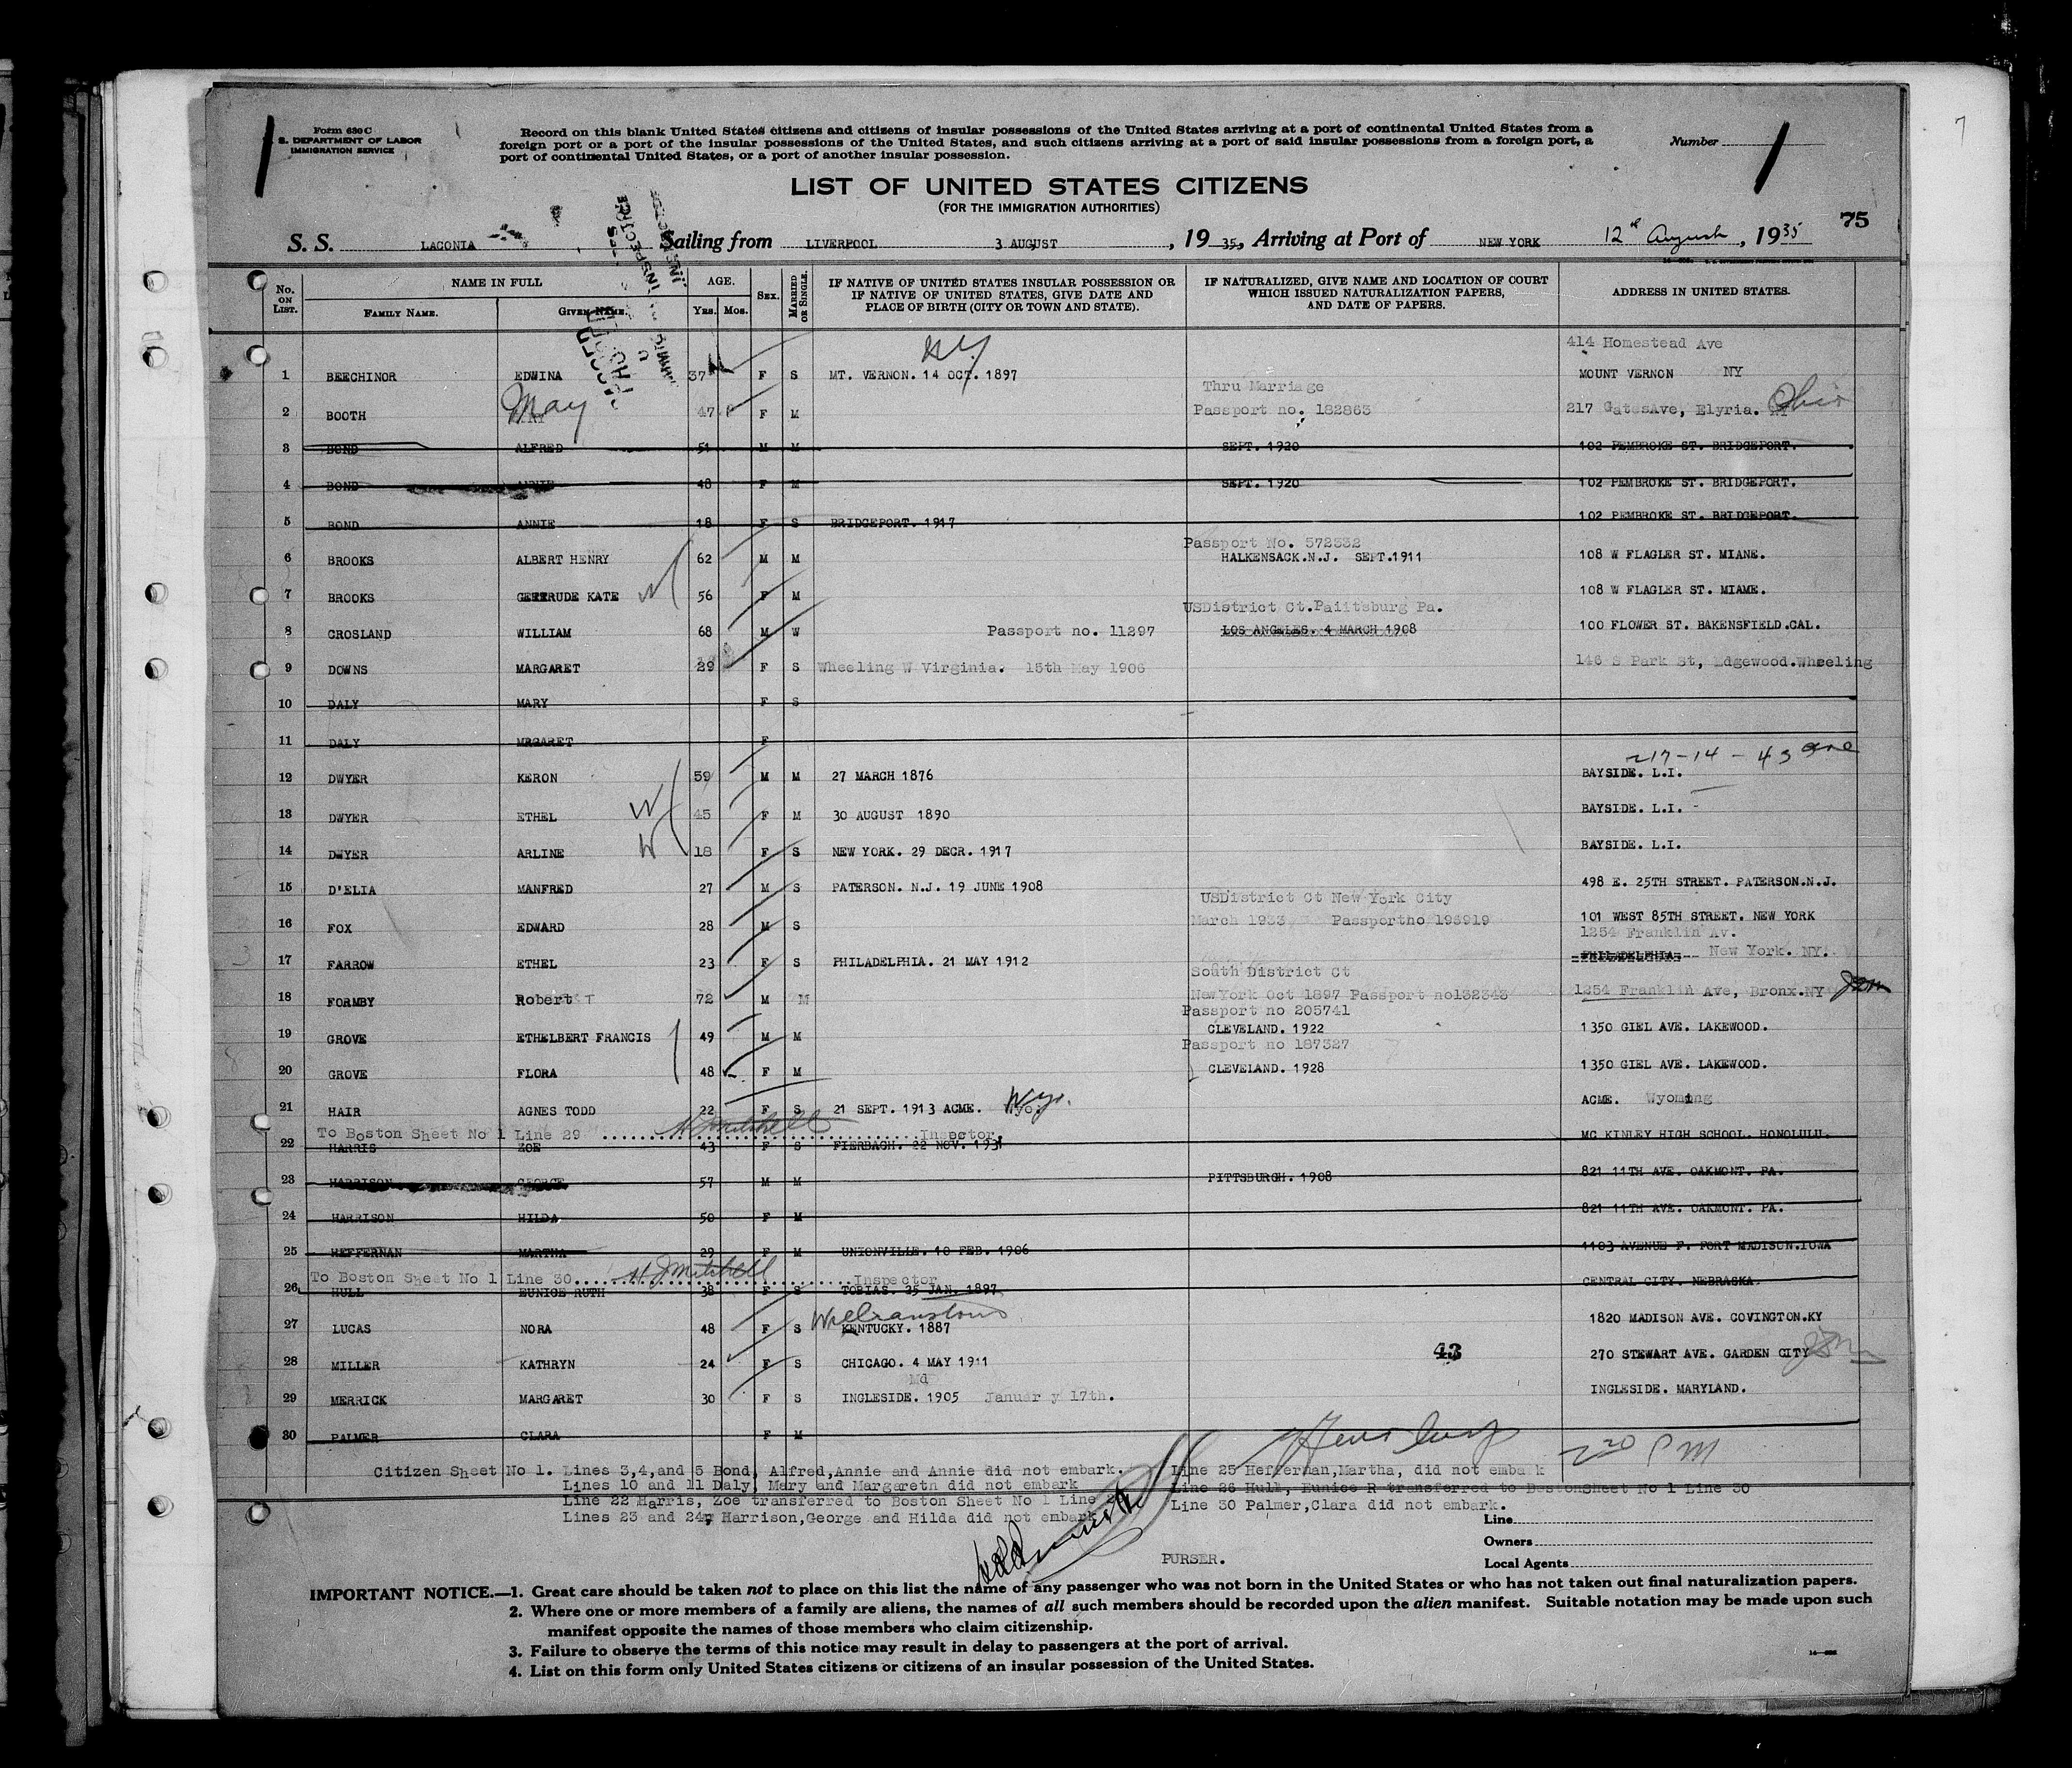 Form 630 C
S. DEPARTMENT OF LABOR
IMMIGRATION SERVICE
Record on this blank United States citizens and citizens of insular possessions of the United States arriving at a port of continental United States from a
foreign port or a port of the insular possessions of the United States, and such citizens arriving at a port of said insular possessions from a foreign port, a
port of continental United States, or a port of another insular possession.
Number 1
7
LIST OF UNITED STATES CITIZENS
(FOR THE IMMIGRATION AUTHORITIES)
75
S. S. LACONIA Sailing from LIVERPOOL 3 AUGUST, 1935, Arriving at Port of NEW YORK 12th August, 1935
No. ON LIST. NAME IN FULL FAMILY NAME. GIVEN NAME. AGE. YRS. MOS. SEX. MARRIED OR SINGLE. IF NATIVE OF UNITED STATES INSULAR POSSESSION OR IF NATIVE OF UNITED STATES, GIVE DATE AND PLACE OF BIRTH (CITY OR TOWN AND STATE). IF NATURALIZED, GIVE NAME AND LOCATION OF COURT WHICH ISSUED NATURALIZATION PAPERS, AND DATE OF PAPERS. ADDRESS IN UNITED STATES.
NY 414 Homestead Ave
1 BEECHINOR EDWINA 37 F S MT. VERNON. 14 OCT. 1897 MOUNT VERNON NY
Thru Marriage
2 BOOTH May 47 F M Passport no. 182863 217 GatesAve, Elyria. Ohio
3 BOND ALFRED 51 M M SEPT. 1920 102 PEMBROKE ST. BRIDGEPORT.
4 BOND ANNIE 48 F M SEPT. 1920 102 PEMBROKE ST. BRIDGEPORT.
5 BOND ANNIE 18 F S BRIDGEPORT. 1917 102 PEMBROKE ST. BRIDGEPORT.
Passport No. 572332
6 BROOKS ALBERT HENRY 62 M M HALKENSACK.N.J. SEPT.1911 108 W FLAGLER ST. MIANE.
7 BROOKS GERTRUDE KATE 56 F M 108 W FLAGLER ST. MIAME.
USDistrict Ct.Paiitsburg Pa.
8 CROSLAND WILLIAM 68 M W Passport no. 11297 LOS ANGELES. 4 MARCH 1908 100 FLOWER ST. BAKENSFIELD.CAL.
9 DOWNS MARGARET 29 F S Wheeling W Virginia. 15th May 1906 146 S Park St, Edgewood.Wheeling
10 DALY MARY F S
11 DALY MRGARET F
217-14-43 ave
12 DWYER KERON 59 M M 27 MARCH 1876 BAYSIDE. L.I.
13 DWYER ETHEL 45 F M 30 AUGUST 1890 BAYSIDE. L.I.
14 DWYER ARLINE 18 F S NEW YORK. 29 DECR. 1917 BAYSIDE. L.I.
15 D'ELIA MANFRED 27 M S PATERSON. N.J. 19 JUNE 1908 498 E. 25TH STREET. PATERSON.N.J.
USDistrict Ct New York City
16 FOX EDWARD 28 M S March 1933 Passportno 196919 101 WEST 85TH STREET. NEW YORK
1254 Franklin Av.
17 FARROW ETHEL 23 F S PHILADELPHIA. 21 MAY 1912 PHILADELPHIA New York. NY.
South District Ct
18 FORMBY Robert 72 M M NewYork Oct 1897 Passport no132343 1254 Franklin Ave, Bronx.NY
Passport no 205741
19 GROVE ETHELBERT FRANCIS 49 M M CLEVELAND. 1922 1350 GIEL AVE. LAKEWOOD.
Passport no 187327
20 GROVE FLORA 48 F M CLEVELAND. 1928 1350 GIEL AVE. LAKEWOOD.
21 HAIR AGNES TODD 22 F S 21 SEPT. 1913 ACME. Wyo. ACME. Wyoming
To Boston Sheet No 1 Line 29 H J Mitchell Inspector.
22 HARRIS ZOE 43 F S FIERBACH. 22 NOV. 1931 MC KINLEY HIGH SCHOOL. HONOLULU.
23 HARRISON GEORGE 57 M M PITTSBURGH. 1908 821 11TH AVE. OAKMONT. PA.
24 HARRISON HILDA 50 F M 821 11TH AVE. OAKMONT. PA.
25 HEFFERNAN MARTHA 29 F M UNIONVILLE. 10 FEB. 1906 1103 AVENUE F. FORT MADISON.IOWA
To Boston Sheet No 1 Line 30 H J Mitchell Inspector
26 HULL EUNICE RUTH 38 F S TOBIAS. 25 JAN. 1897 CENTRAL CITY. NEBRASKA.
Williamstown
27 LUCAS NORA 48 F S KENTUCKY. 1887 1820 MADISON AVE. COVINGTON.KY
28 MILLER KATHRYN 24 F S CHICAGO. 4 MAY 1911 43 270 STEWART AVE. GARDEN CITY
Md
29 MERRICK MARGARET 30 F S INGLESIDE. 1905 January 17th. INGLESIDE. MARYLAND.
30 PALMER CLARA F M
2 20 PM
Citizen Sheet No 1. Lines 3,4,and 5 Bond, Alfred,Annie and Annie did not embark. Line 25 Heffernan,Martha, did not embark
Lines 10 and 11 Daly, Mary and Margaretn did not embark Line 26 Hull, Eunice R transferred to BostonSheet No 1 Line 30
Line 22 Harris, Zoe transferred to Boston Sheet No 1 Line Line 30 Palmer,Clara did not embark.
Lines 23 and 24, Harrison,George and Hilda did not embark
Line
Owners
PURSER.
Local Agents
IMPORTANT NOTICE.—1. Great care should be taken not to place on this list the name of any passenger who was not born in the United States or who has not taken out final naturalization papers.
2. Where one or more members of a family are aliens, the names of all such members should be recorded upon the alien manifest. Suitable notation may be made upon such
manifest opposite the names of those members who claim citizenship.
3. Failure to observe the terms of this notice may result in delay to passengers at the port of arrival.
4. List on this form only United States citizens or citizens of an insular possession of the United States.